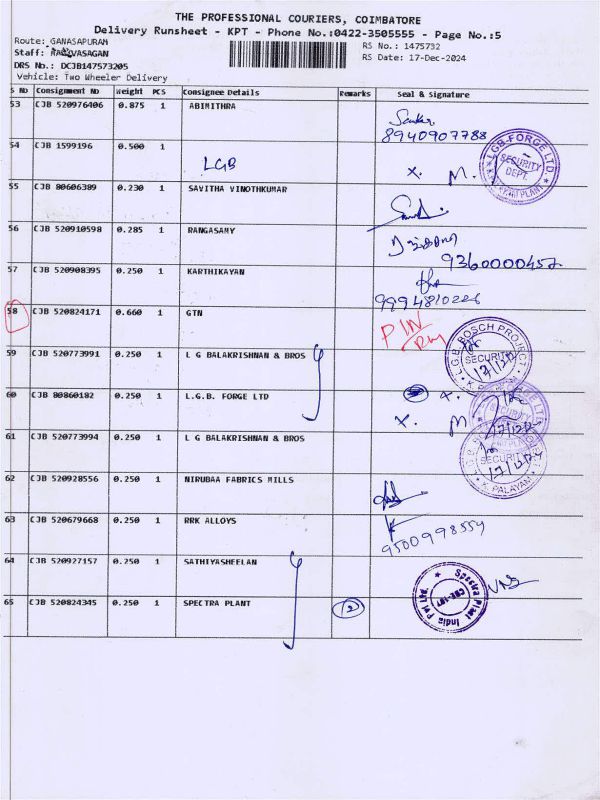 THE PROFESSIONAL COURIERS, COIMBATORE
Delivery Runsheet - KPT - Phone No.:0422-3505555 - Page No.:5
Route: GANASAPURAM
RS No.: 1475732
Staff:
RS Date: 17-Dec-2024
DRS No.: DCJB147573205
Vehicle: Two Wheeler Delivery
S No Consignment No Weight PCS Consignee Details Remarks Seal & Signature
53 CJB 520976406 0.875 1 ABIMITHRA
8940907788
54 CJB 1599196 0.500 1
LGB
X. M.
LGB-FORGE LTD. SECURITY DEPT.
55 CJB 80606389 0.230 1 SAVITHA VINOTHKUMAR
56 CJB 520910598 0.285 1 RANGASAMY
9360000452
57 CJB 520908395 0.250 1 KARTHIKAYAN
9994810226
58 CJB 520824171 0.660 1 GTN
PIN
L.G.B. BOSCH PROJECT SECURITY K. PALAYAM
17/12/24
59 CJB 520773991 0.250 1 L G BALAKRISHNAN & BROS
60 CJB 80860182 0.250 1 L.G.B. FORGE LTD
X.
X. M
61 CJB 520773994 0.250 1 L G BALAKRISHNAN & BROS
SECURITY K. PALAYAM
17/12/24
62 CJB 520928556 0.250 1 NIRUBAA FABRICS MILLS
63 CJB 520679668 0.250 1 RRK ALLOYS
9500998554
64 CJB 520927157 0.250 1 SATHIYASHEELAN
65 CJB 520824345 0.250 1 SPECTRA PLANT
12
Spectra Plast India Pvt Ltd. CBE-107